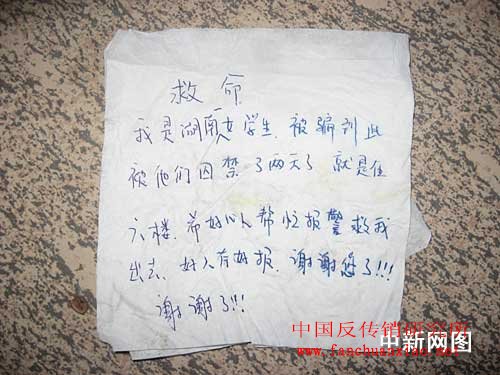 救命
我是湖南女学生.被骗到此
被他们囚禁了两天了 就是住
六楼.希好心人帮忙报警救我
出去.好人有好报.谢谢您了!!!
谢谢了!!!
中国反传销
中新网图